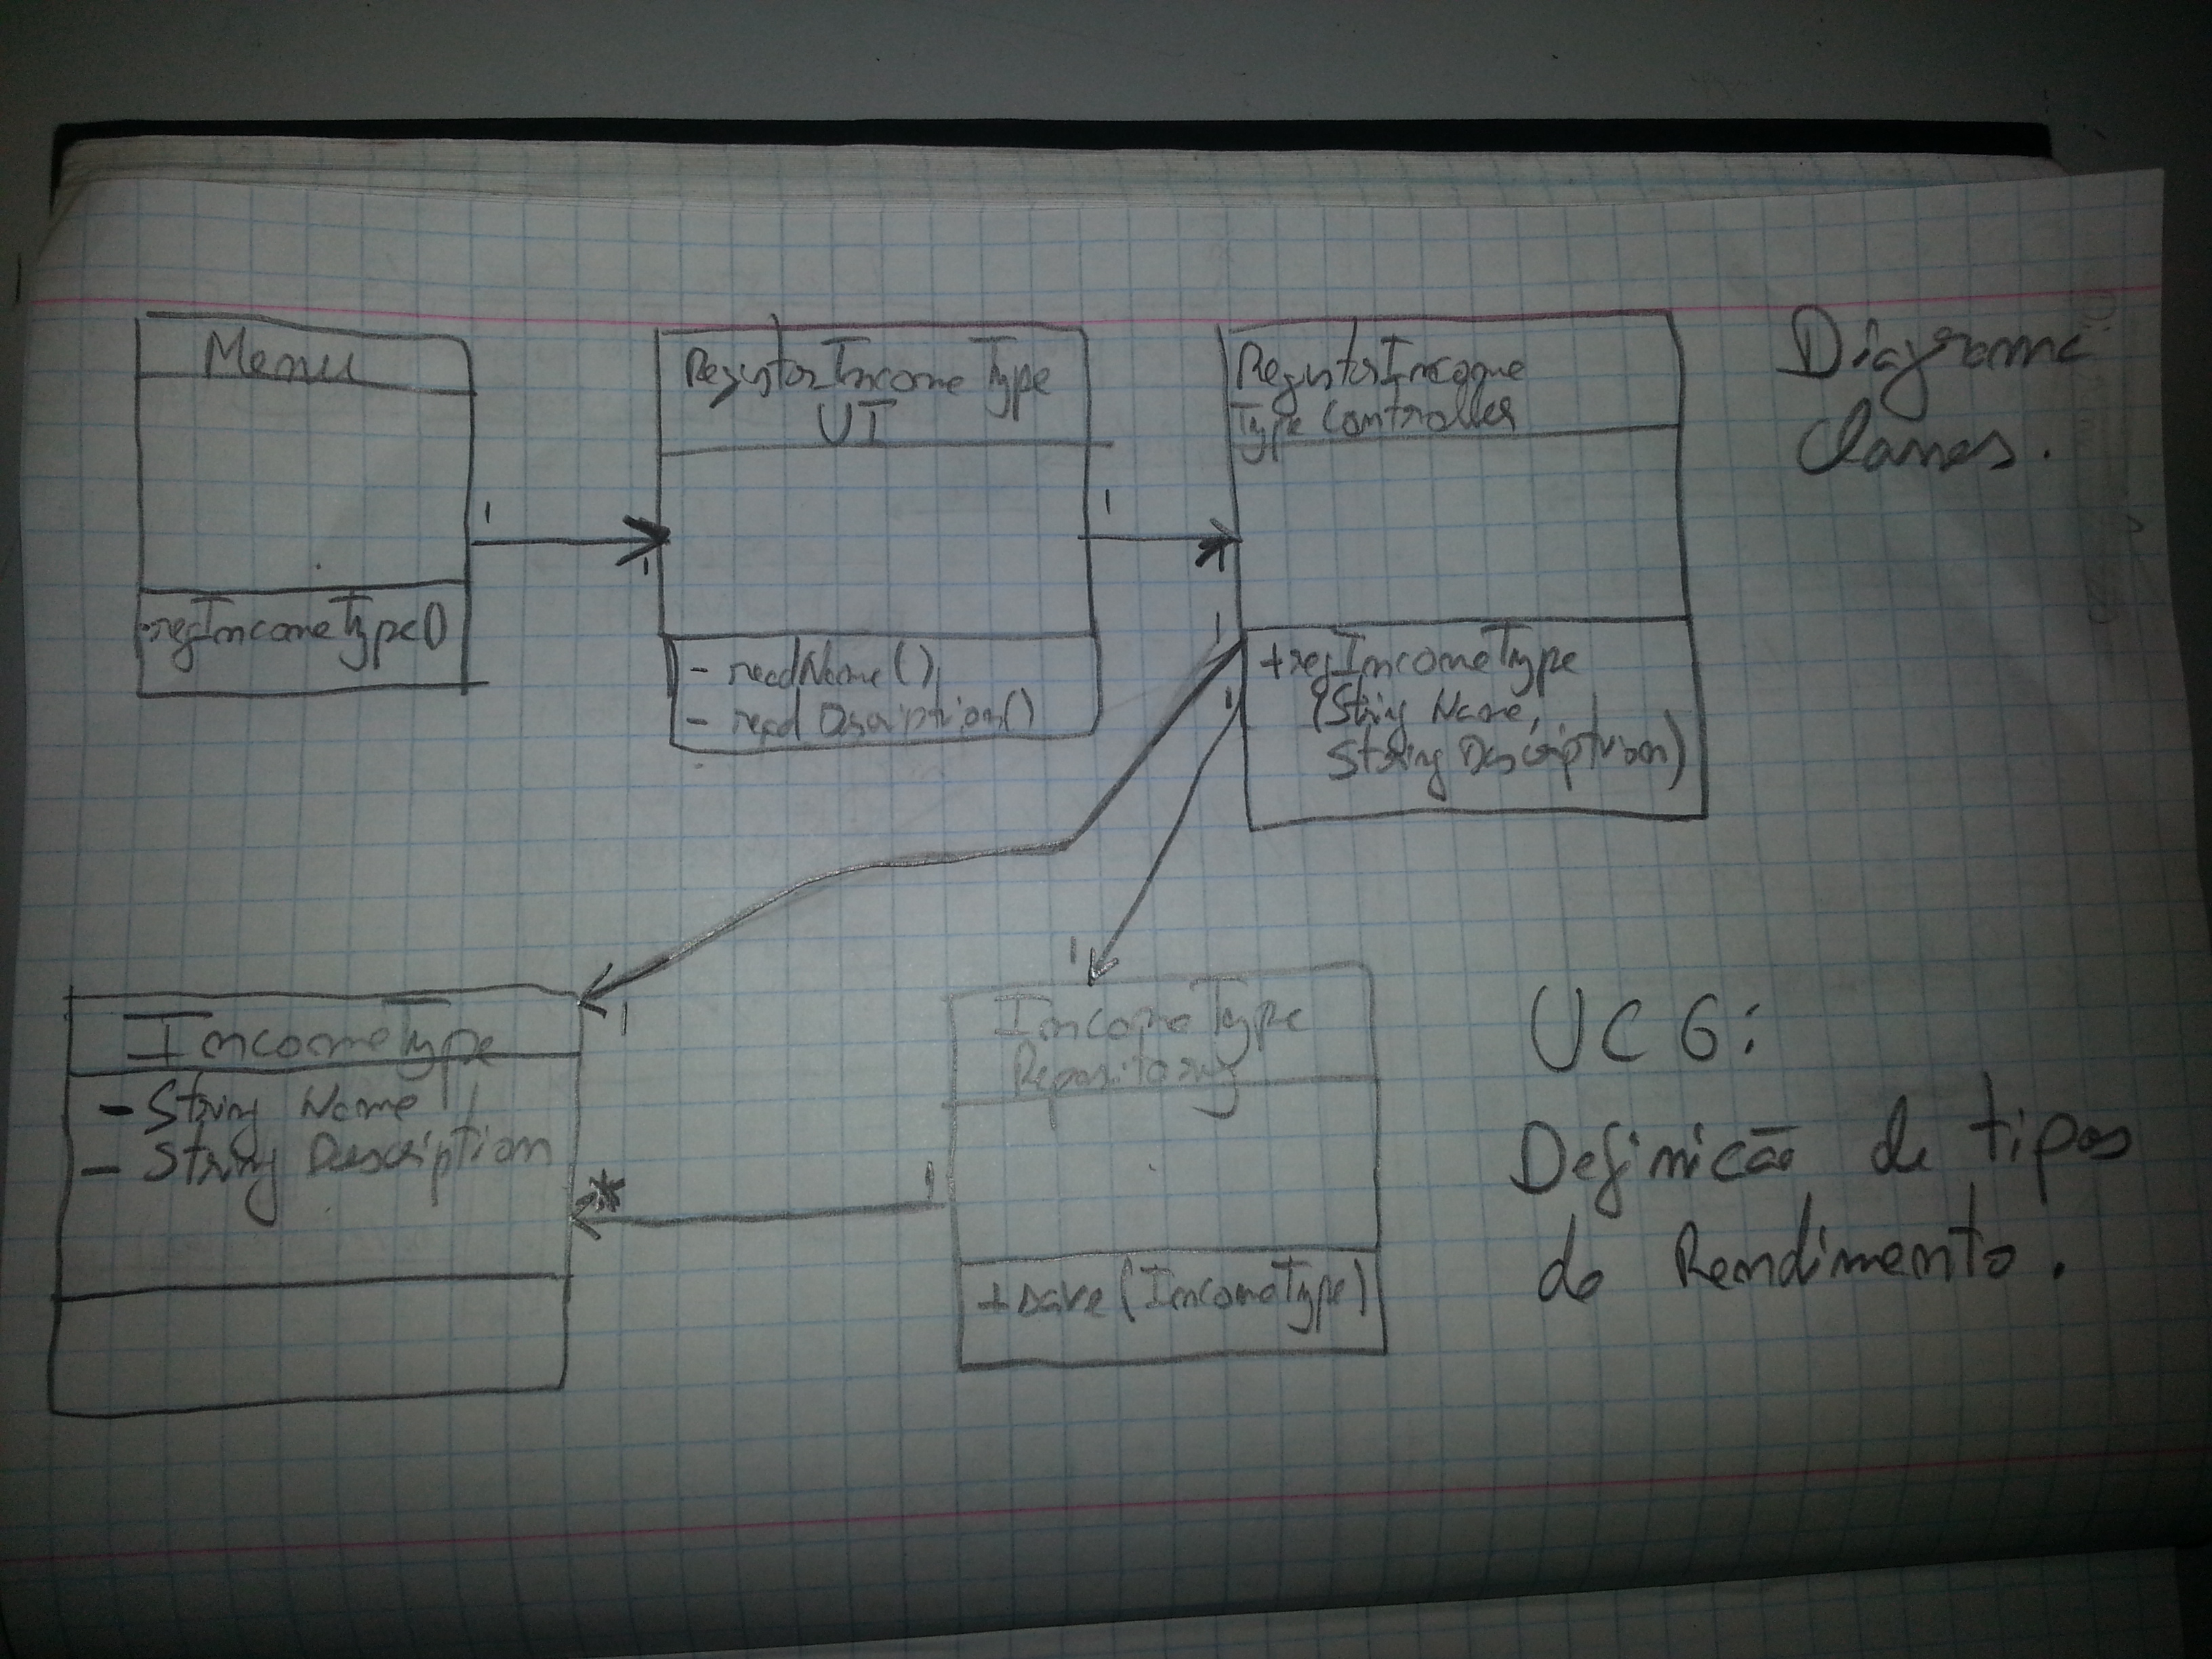 Menu
-regIncomeType()
1
1
RegisterIncomeType
UI
- readName()
- readDescription()
1
1
RegisterIncome
Type Controller
+regIncomeType
(String Name,
String Description)
Diagrama
Classes.
1
1
1
1
IncomeType
- String Name
- String Description
*
1
IncomeType
Repository
+save(IncomeType)
UC6:
Definicão de tipos
de Rendimento.